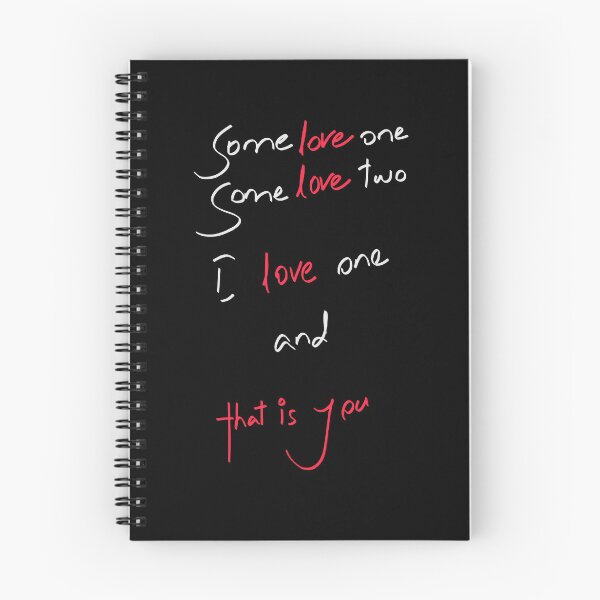 Some love one
Some love two
I love one
and
that is you